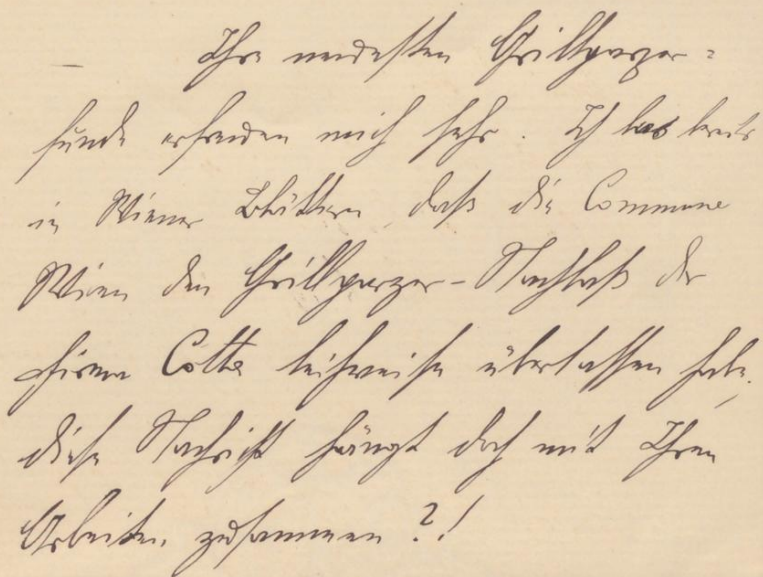 Ihre neuesten Grillparzer-
funde erfreuen mich sehr. Ich las bereits
in Wiener Blättern, daß die Commune
Wien den Grillparzer-Nachlaß der
Firma Cotta leihweise überlassen habe,
diese Nachricht hängt doch mit Ihren
Arbeiten zusammen?!